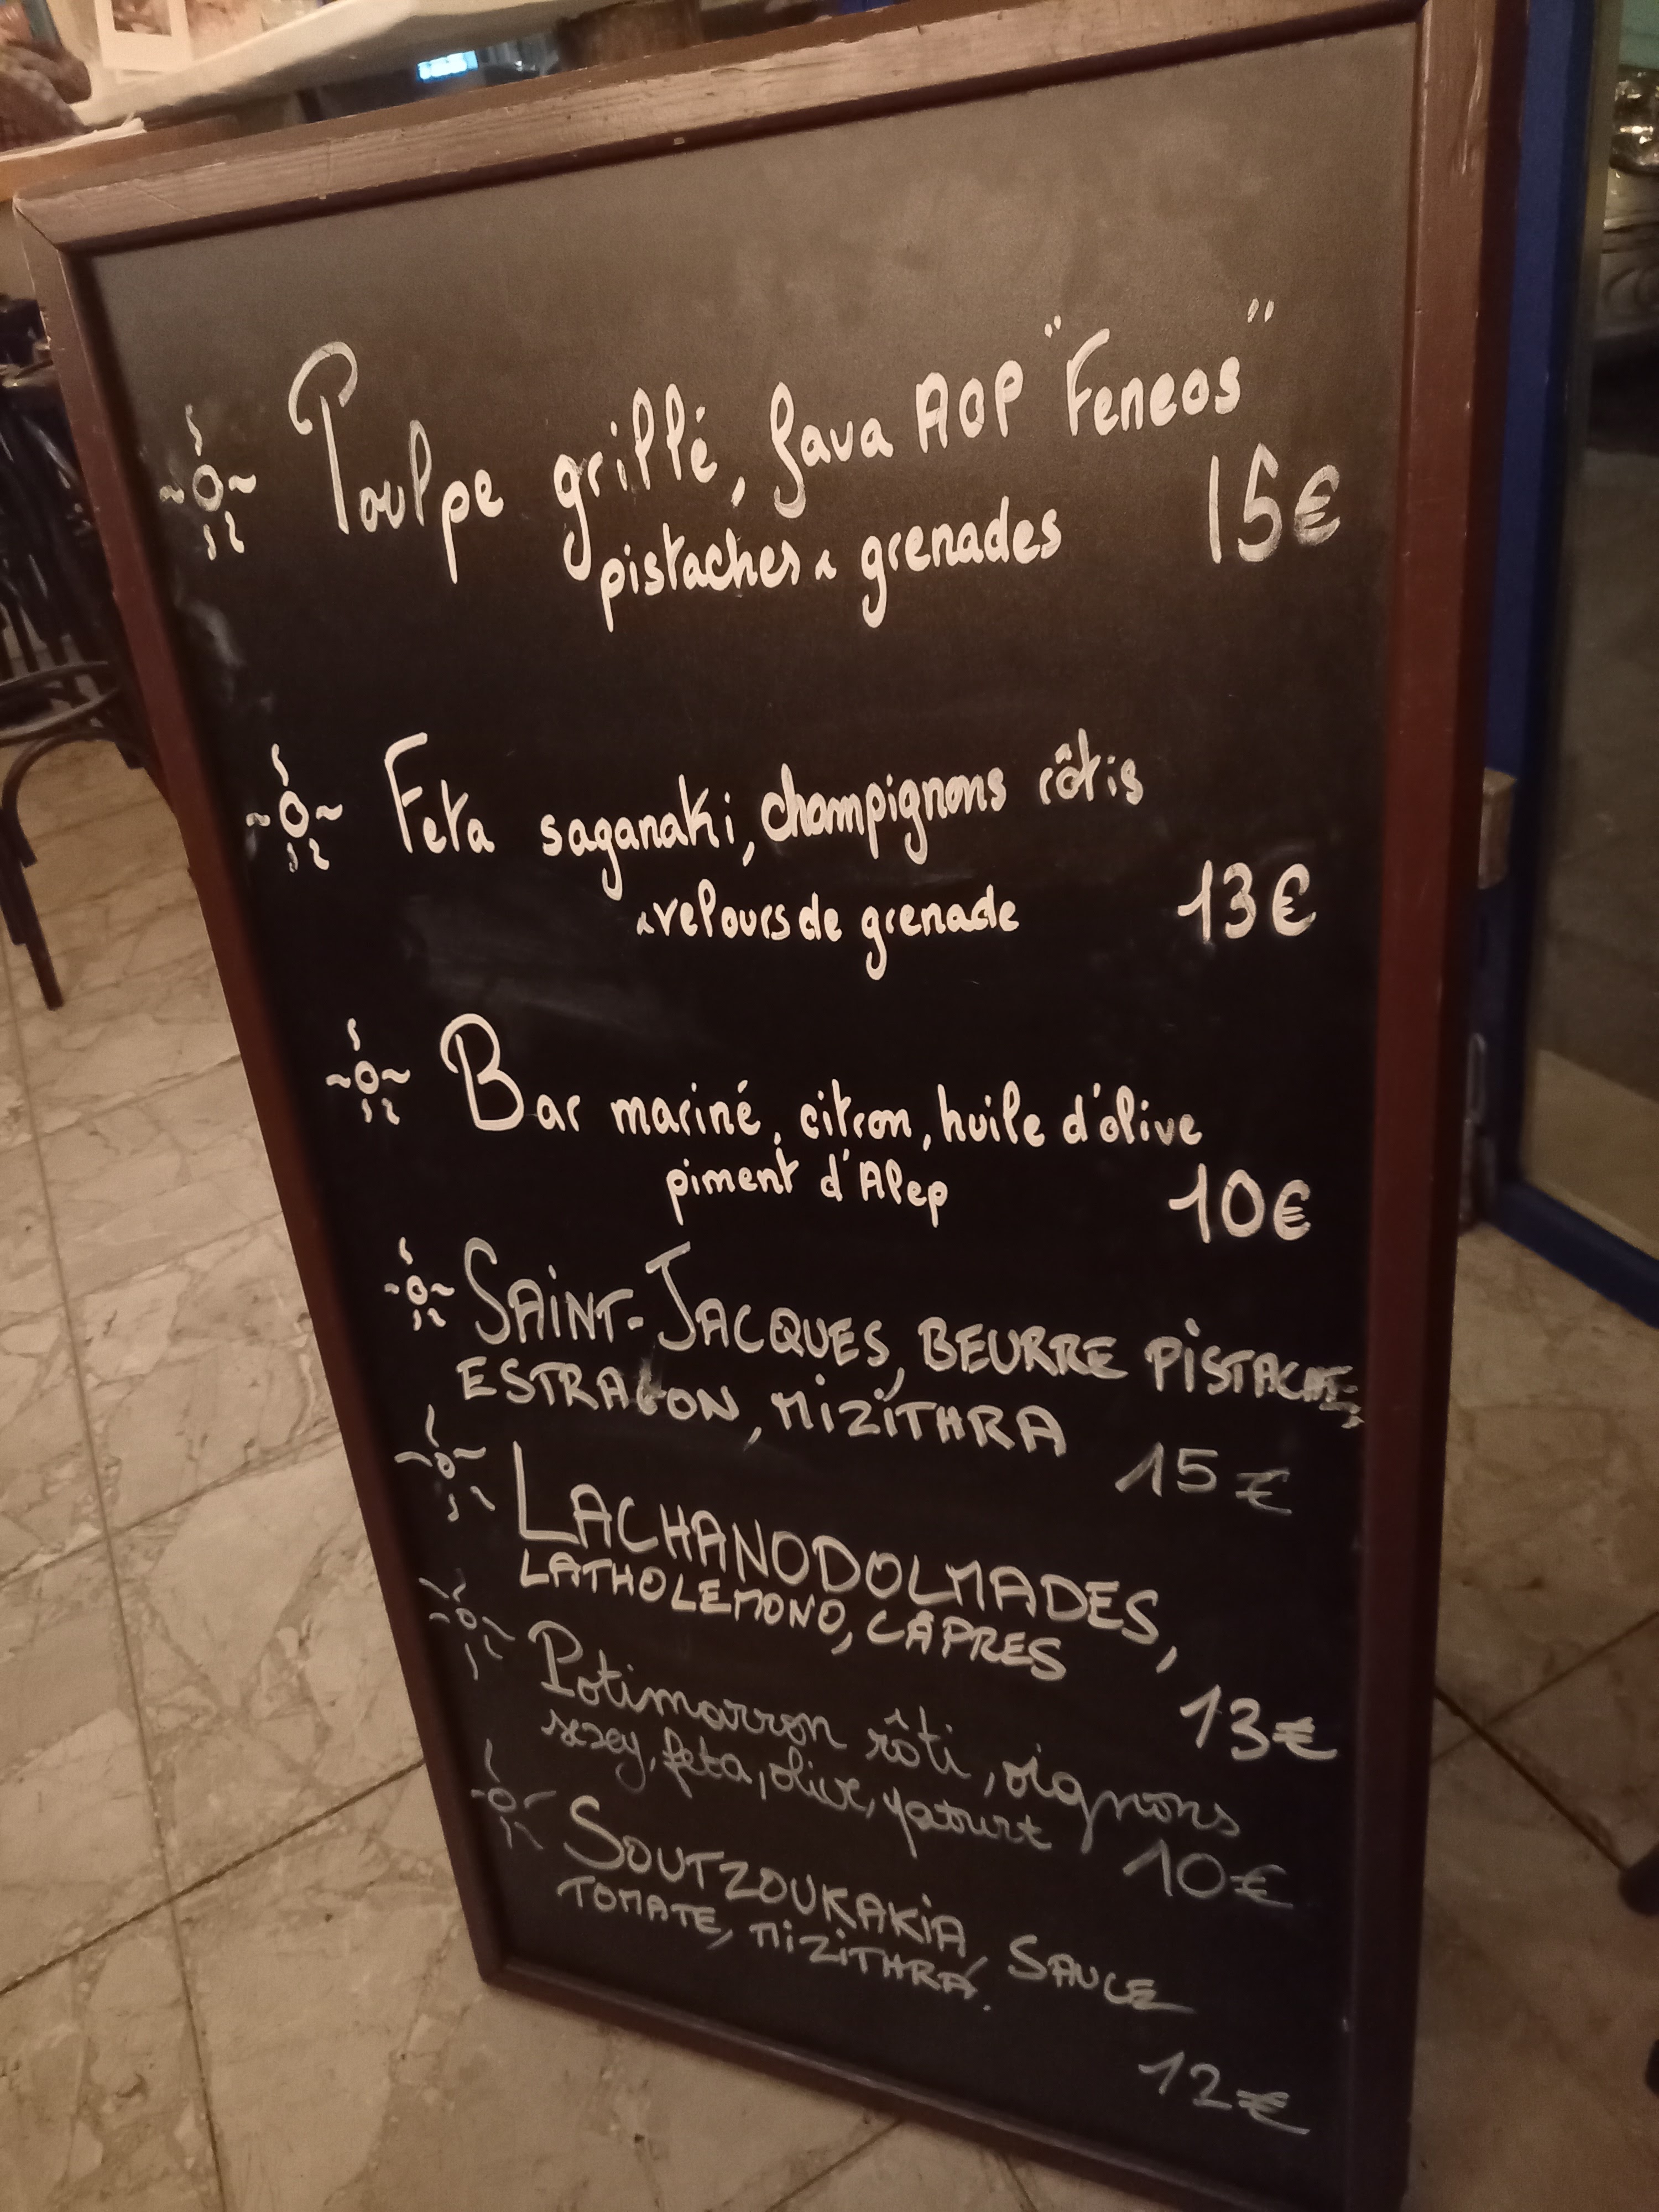 Poulpe grillé, fava AOP "Feneos"
pistaches & grenades 15€
Feta saganaki, champignons rôtis
& velours de grenade 13€
Bar mariné, citron, huile d'olive
piment d'Alep 10€
SAINT-JACQUES, BEURRE PISTACHE,
ESTRAGON, MIZITHRA 15€
LACHANODOLMADES,
LATHOLEMONO, CÂPRES
13€
Potimarron rôti, oignons
sexy, feta, olive, yaourt
10€
SOUTZOUKAKIA, SAUCE
TOMATE, MIZITHRA.
12€